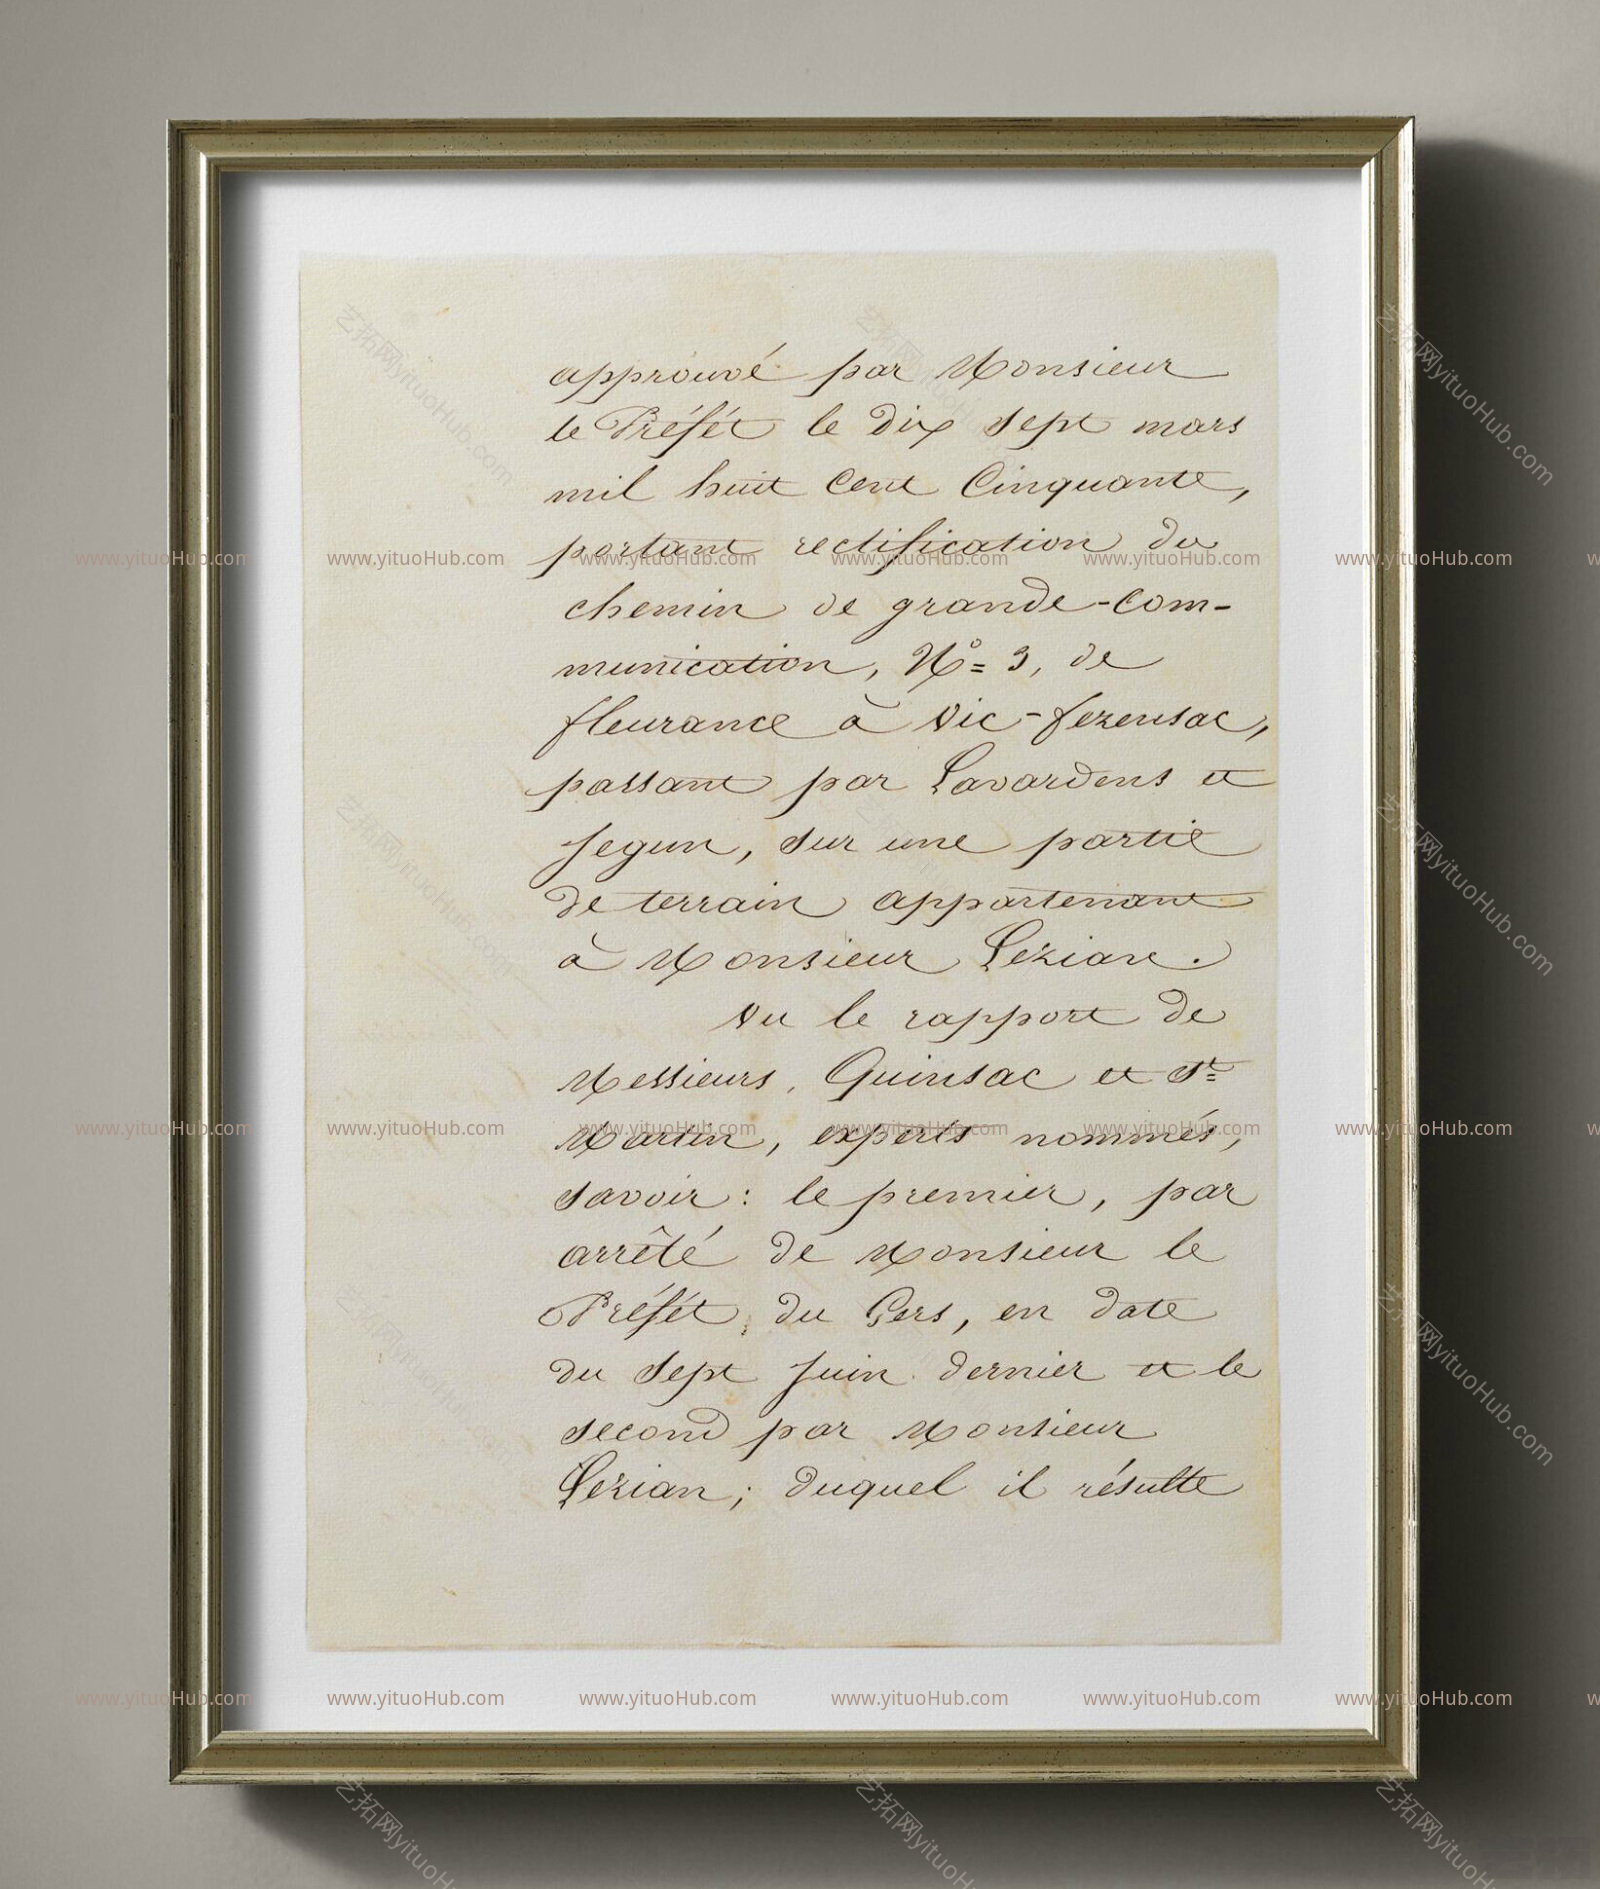 approuvé par Monsieur
le Préfét le dix sept mars
mil huit cent cinquante,
portant rectification du
chemin de grande-com-
munication, Nº= 3, de
fleurance à Vic-fezensac,
passant par Lavardens et
Jegun, sur une partie
de terrain appartenant
à Monsieur Lezian.
Vu le rapport de
Messieurs, Guinsac et St=
Martin, experts nommés,
savoir: le premier, par
arrêté de Monsieur le
Préfét du Gers, en date
du sept Juin dernier et le
second par Monsieur
Lezian; duquel il résulte
www.yituoHub.com
艺拓网yituoHub.com